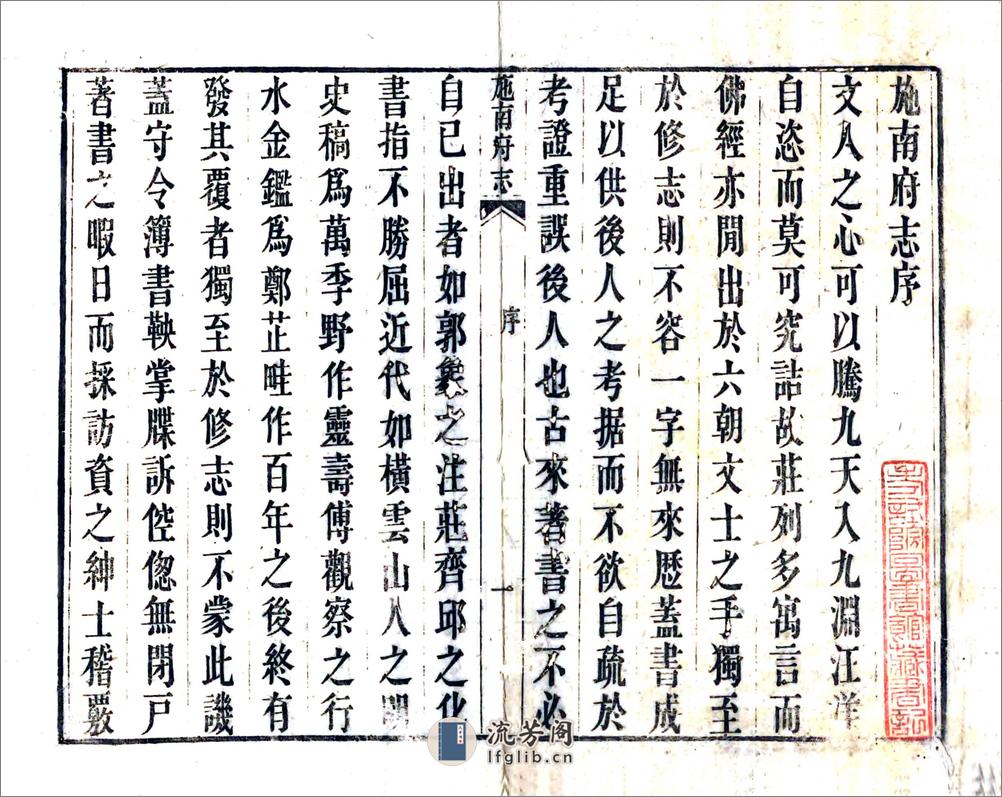 施南府志序
文人之心可以騰九天入九淵汪洋
自恣而莫可究詰故莊列多寓言而
佛經亦閒出於六朝文士之手獨至
於修志則不容一字無來歷蓋書成
足以供後人之考据而不欲自疏於
考證重誤後人也古來著書之不必
施南府志
序
一
自己出者如郭象之注莊齊邱之化
書指不勝屈近代如橫雲山人之明
史稿爲萬季野作靈壽傅觀察之行
水金鑑爲鄭芷畦作百年之後終有
發其覆者獨至於修志則不蒙此譏
蓋守令簿書鞅掌牒訴倥偬無閉戸
著書之暇日而採訪資之紳士稽覈
流芳阁
lfglib.cn